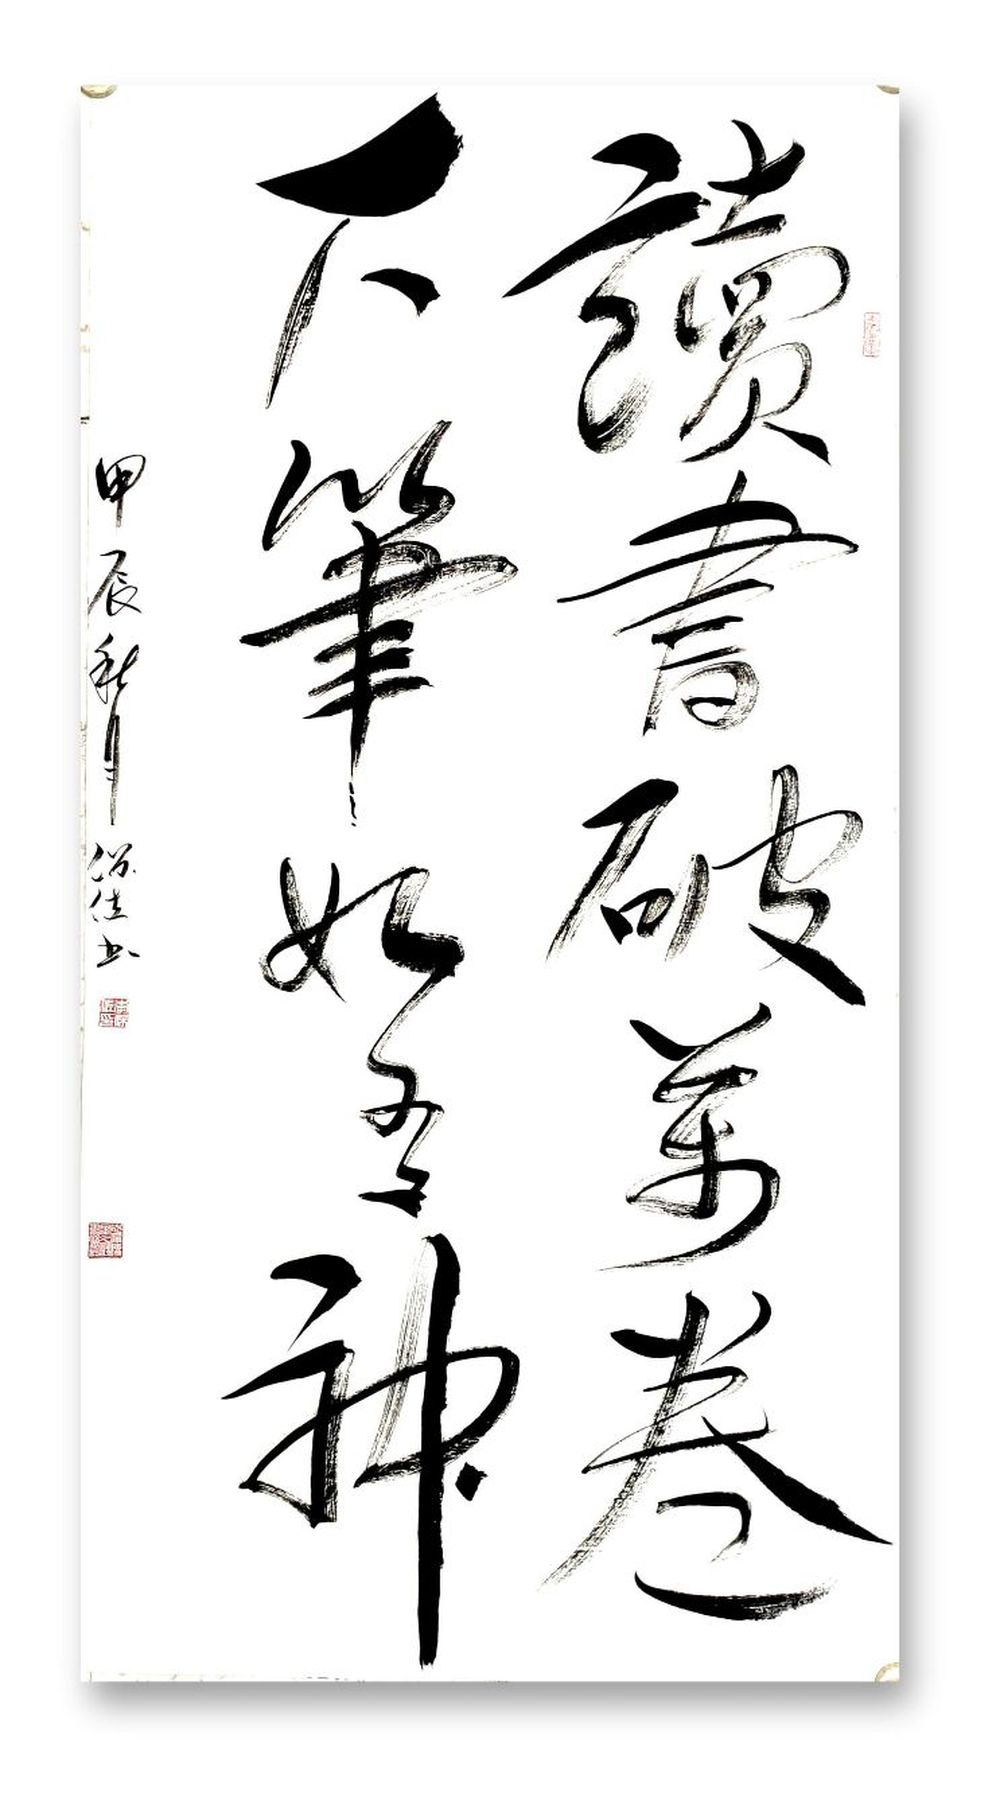 讀書破萬卷
下筆如有神
甲辰秋月 佳书